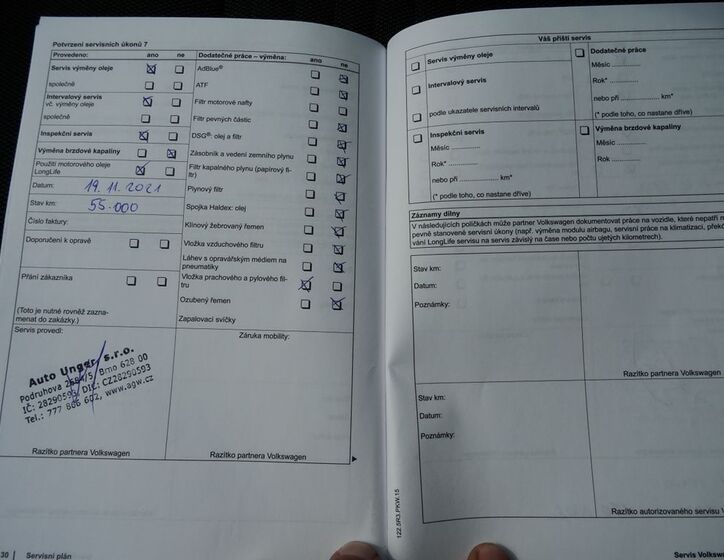 Potvrzení servisních úkonů 7
Provedeno: ano ne
Servis výměny oleje
společně
Intervalový servis
vč. výměny oleje
společně
Inspekční servis
Výměna brzdové kapaliny
Použití motorového oleje
LongLife
Datum: 19. 11. 2021
Stav km: 55.000
Číslo faktury:
Doporučení k opravě
Přání zákazníka
(Toto je nutné rovněž zazna-
menat do zakázky.)
Servis provedl:
Auto Unger s.r.o.
Podruhova 2684/5, Brno 628 00
IČ: 28290593, DIČ: CZ28290593
Tel.: 777 866 602, www.agw.cz
Razítko partnera Volkswagen
Dodatečné práce – výměna: ano ne
AdBlue®
ATF
Filtr motorové nafty
Filtr pevných částic
DSG®: olej a filtr
Zásobník a vedení zemního plynu
Filtr kapalného plynu (papírový fi-
ltr)
Plynový filtr
Spojka Haldex: olej
Klínový žebrovaný řemen
Vložka vzduchového filtru
Láhev s opravářským médiem na
pneumatiky
Vložka prachového a pylového fil-
tru
Ozubený řemen
Zapalovací svíčky
Záruka mobility:
Razítko partnera Volkswagen
30 Servisní plán
Váš příští servis
Servis výměny oleje
Intervalový servis
podle ukazatele servisních intervalů
Inspekční servis
Měsíc ....................
Rok* ....................
nebo při .................... km*
(* podle toho, co nastane dříve)
Dodatečné práce
Měsíc ....................
Rok* ....................
nebo při .................... km*
(* podle toho, co nastane dříve)
Výměna brzdové kapaliny
Měsíc ....................
Rok ....................
Záznamy dílny
V následujících políčkách může partner Volkswagen dokumentovat práce na vozidle, které nepatří
pevně stanovené servisní úkony (např. výměnu modulu airbagu, servisní práce na klimatizaci,
vání LongLife servisu na servis závislý na čase nebo počtu ujetých kilometrech).
Stav km:
Datum:
Poznámky:
Razítko partnera Volkswagen
Stav km:
Datum:
Poznámky:
Razítko autorizovaného servisu
122.5R3.PKW.15
Servis Volksw